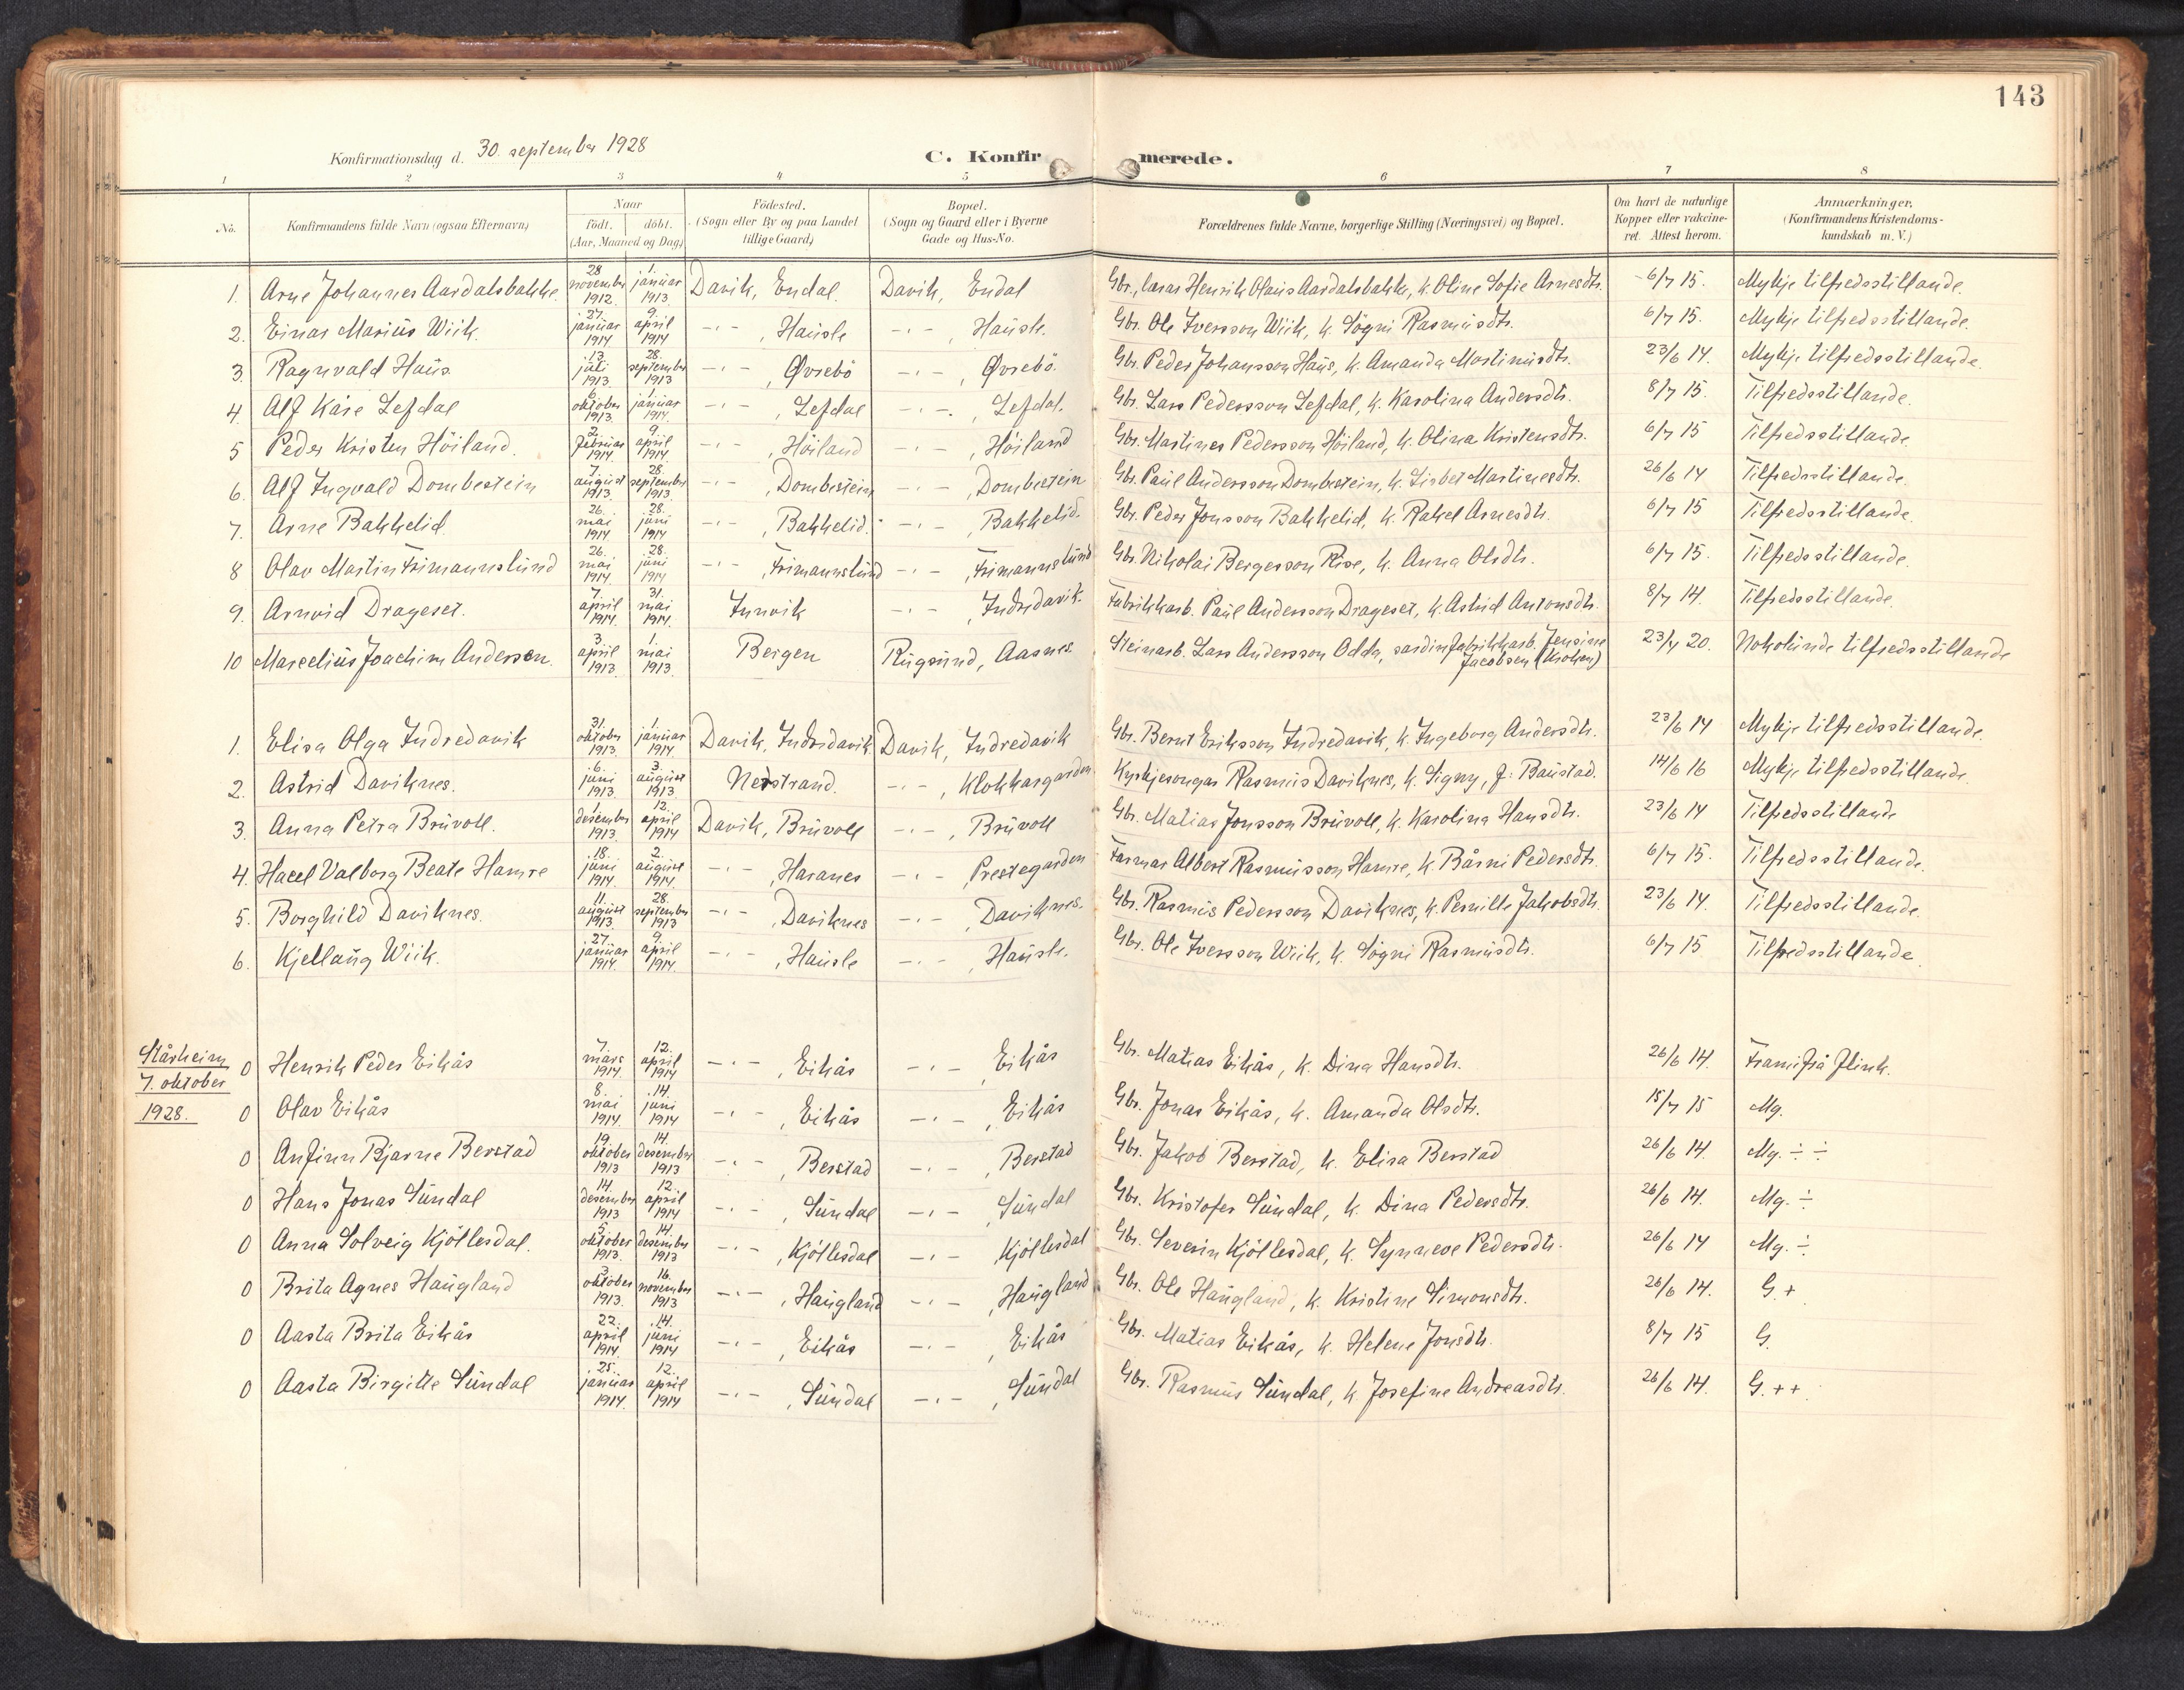 143
Konfirmationsdag d. 30. september 1928
C. Konfirmerede.
1 2 3 4 5 6 7 8
No. Konfirmandens fulde Navn (ogsaa Efternavn) Naar født. døbt. (Aar, Maaned og Dag) Fødested. (Sogn eller By og paa Landet tillige Gaard) Bopæl. (Sogn og Gaard eller i Byerne Gade og Hus-No. Forældrenes fulde Navne, borgerlige Stilling (Næringsvei) og Bopæl. Om havt de naturlige Kopper eller vakcineret. Attest herom. Anmærkninger. (Konfirmandens Kristendomskundskab m. V.)
1. Arne Johannes Aardalsbakke. 28 november 1912. 1. januar 1913. Davik, Endal. Davik, Endal Gbr., Henrik Olaus Aardalsbakke, k. Oline Sofie Arnesdtr. 6/7 15. Mykje tilfredsstillande.
2. Einar Marius Wiik. 27. januar 1914 9. april 1914 -"- , Hausle -"- , Hausle. Gbr. Ole Iversson Wiik, k. Søgni Rasmusdtr. 6/7 15. Mykje tilfredsstillande.
3. Ragnvald Haus. 13. juli 1913. 28. september 1913 -"- , Øvrebø -"- , Øvrebø. Gbr. Peder Johansson Haus, k. Amanda Martinusdtr. 23/6 14. Mykje tilfredsstillande.
4. Alf Kåre Lefdal 6. oktober 1913. 1. januar 1914. -"- , Lefdal -"- , Lefdal. Gbr. Lars Pedersson Lefdal, k. Karolina Andersdtr. 8/7 15. Tilfredsstillande.
5 Peder Kristen Høiland. 2. februar 1914. 9. april 1914. -"- , Høiland -"- , Høiland Gbr. Martines Pedersson Høiland, k. Olina Kristensdtr. 6/7 15 Tilfredsstillande.
6. Alf Ingvald Dombestein 7. august 1913. 28. september 1913. -"- , Dombestein -"- , Dombestein Gbr. Paul Andersson Dombestein, k. Lisbet Martinesdtr. 26/6 14 Tilfredsstillande.
7. Arne Bakkelid. 26. mai 1914 28. juni 1914 -"- , Bakkelid. -"- , Bakkelid. Gbr. Peder Jonsson Bakkelid, k. Rakel Arnesdtr. 6/7 15 Tilfredsstillande.
8 Olav Martin Frimannslund 26. mai 1914. 28. juni 1914 -"- , Frimannslund -"- , Frimannslund Gbr. Nikolai Bergesson Rise, k. Anna Olsdtr. 6/7 15. Tilfredsstillande.
9. Arnvid Drageset. 7. april 1914. 31. mai 1914. Innvik -"- , Indredavik. Fabrikkarb. Paul Andersson Drageset, k. Astrid Antonsdtr. 8/7 14. Tilfredsstillande.
10 Marcelius Joachim Andersen. 3. april 1913. 1. mai 1913. Bergen Rugsund, Aasnes. Steinarb. Lars Andersson Odda, sardinfabrikkarb. Jensine Jacobsen (Kroken) 23/4 20. Nokolunde tilfredsstillande
1. Elisa Olga Indredavik 31. oktober 1913. 1. januar 1914. Davik, Indredavik. Davik, Indredavik Gbr. Bernt Eriksson Indredavik, k. Ingeborg Andersdtr. 23/6 14 Mykje tilfredsstillande.
2. Astrid Daviknes. 6. juni 1913. 3. august 1913 Nerstrand. -"- , Klokkargarden. Kyrkjesongar Rasmus Daviknes, k. Signy, f. Baustad. 14/6 16 Mykje tilfredsstillande.
3. Anna Petra Bruvoll. 1. desember 1913. 12. april 1914 Davik, Bruvoll -"- , Bruvoll Gbr. Matias Jonsson Bruvoll, k. Karolina Hansdtr. 23/6 14 Tilfredsstillande
4. Hacel Valborg Beate Hamre 18. juni 1914. 2. august 1914. -"- , Haranes -"- , Prestegarden Farmar Albert Rasmusson Hamre, k. Bårni Pedersdtr. 6/7 15. Tilfredsstillande.
5. Borghild Daviknes. 11. august 1913. 28. september 1913 -"- , Daviknes -"- , Daviknes. Gbr. Rasmus Pedersson Daviknes, k. Pernille Jakobsdtr. 23/6 14. Tilfredsstillande.
6. Kjellaug Wiik. 27. januar 1914. 9. april 1914. -"- , Hausle -"- , Hausle. Gbr. Ole Iversson Wiik, k. Søgni Rasmusdtr. 6/7 15 Tilfredsstillande.
Stårheim
7. oktober
1928.
0 Henrik Peder Eikås 7. mars 1914. 12. april 1914 -"- , Eikås -"- , Eikås Gbr. Matias Eikås, k. Dina Hansdtr. 26/6 14. Framifrå flink.
0 Olav Eikås 8. mai 1914. 14. juni 1914 -"- , Eikås -"- , Eikås Gbr. Jonas Eikås, k. Amanda Olsdtr. 15/7 15 Mg.
0 Anfinn Bjarne Berstad 19. oktober 1913 14. desember 1913 -"- , Berstad -"- , Berstad Gbr. Jakob Berstad, k. Elisa Berstad 26/6 14. Mg. ÷ ÷
0 Hans Jonas Sundal 14. desember 1913 12. april 1914 -"- , Sundal -"- , Sundal Gbr. Kristofer Sundal, k. Dina Pedersdtr. 26/6 14. Mg. ÷
0 Anna Solveig Kjøllesdal. 5. oktober 1913. 14. desember 1913 -"- , Kjøllesdal -"- , Kjøllesdal Gbr. Severin Kjøllesdal, k. Synneve Pedersdtr. 26/6 14 Mg. ÷
0 Brita Agnes Haugland 3. oktober 1913. 16. november 1913 -"- , Haugland -"- , Haugland Gbr. Ole Haugland, k. Kristine Simonsdtr. 26/6 14. G. +
0 Aasta Brita Eikås 22. april 1914. 14. juni 1914 -"- , Eikås -"- , Eikås Gbr. Matias Eikås, k. Helene Jonsdtr. 8/7 15 G.
0 Aasta Birgitte Sundal 25. januar 1914. 12. april 1914 -"- , Sundal -"- , Sundal Gbr. Rasmus Sundal, k Josefine Andreasdtr. 26/6 14. G. ++